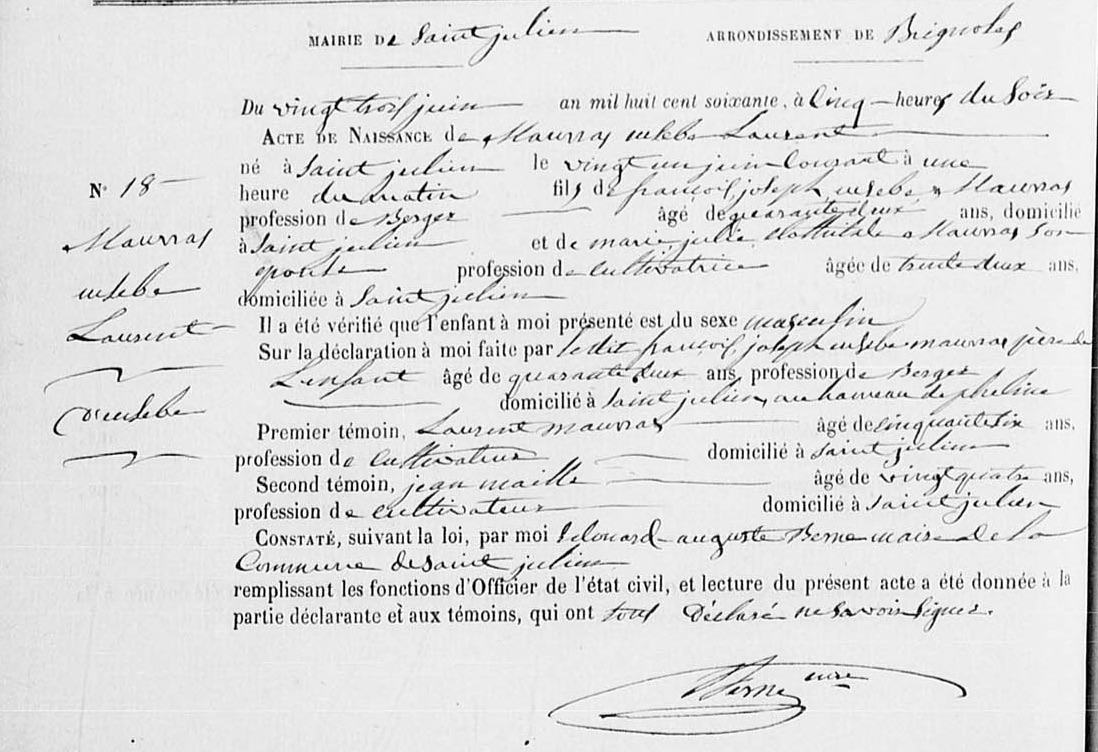 MAIRIE De Saint julien ARRONDISSEMENT DE Brignoles
Du vingt trois juin an mil huit cent soixante, à Cinq heures du Soir
ACTE DE NAISSANCE de Maurras usebe Laurent
né à Saint julien le vingt un juin Courant à une
N° 18 heure du matin fils de françois joseph usebe Maurras
profession de Berger âgé de quarante deux ans, domicilié
Maurras à Saint julien et de marie julie Clothilde Maurras Son
usebe épouse profession de Cultivatrice âgée de trente deux ans,
domiciliée à Saint julien
Laurent Il a été vérifié que l'enfant à moi présenté est du sexe masculin
Sur la déclaration à moi faite par le dit françois joseph usebe maurras père de
L'enfant âgé de quarante deux ans, profession de Berger
domicilié à Saint julien, au hameau de pheline
Premier témoin, Laurent maurras âgé de Cinquante six ans,
profession de Cultivateur domicilié à Saint julien
Second témoin, jean maille âgé de vingt quatre ans,
profession de Cultivateur domicilié à Saint julien
CONSTATÉ, suivant la loi, par moi Edouard auguste Berne maire de la
Commune de Saint julien
remplissant les fonctions d'Officier de l'état civil, et lecture du présent acte a été donnée à la
partie déclarante et aux témoins, qui ont tous Déclaré ne Savoir Signer.
Berne